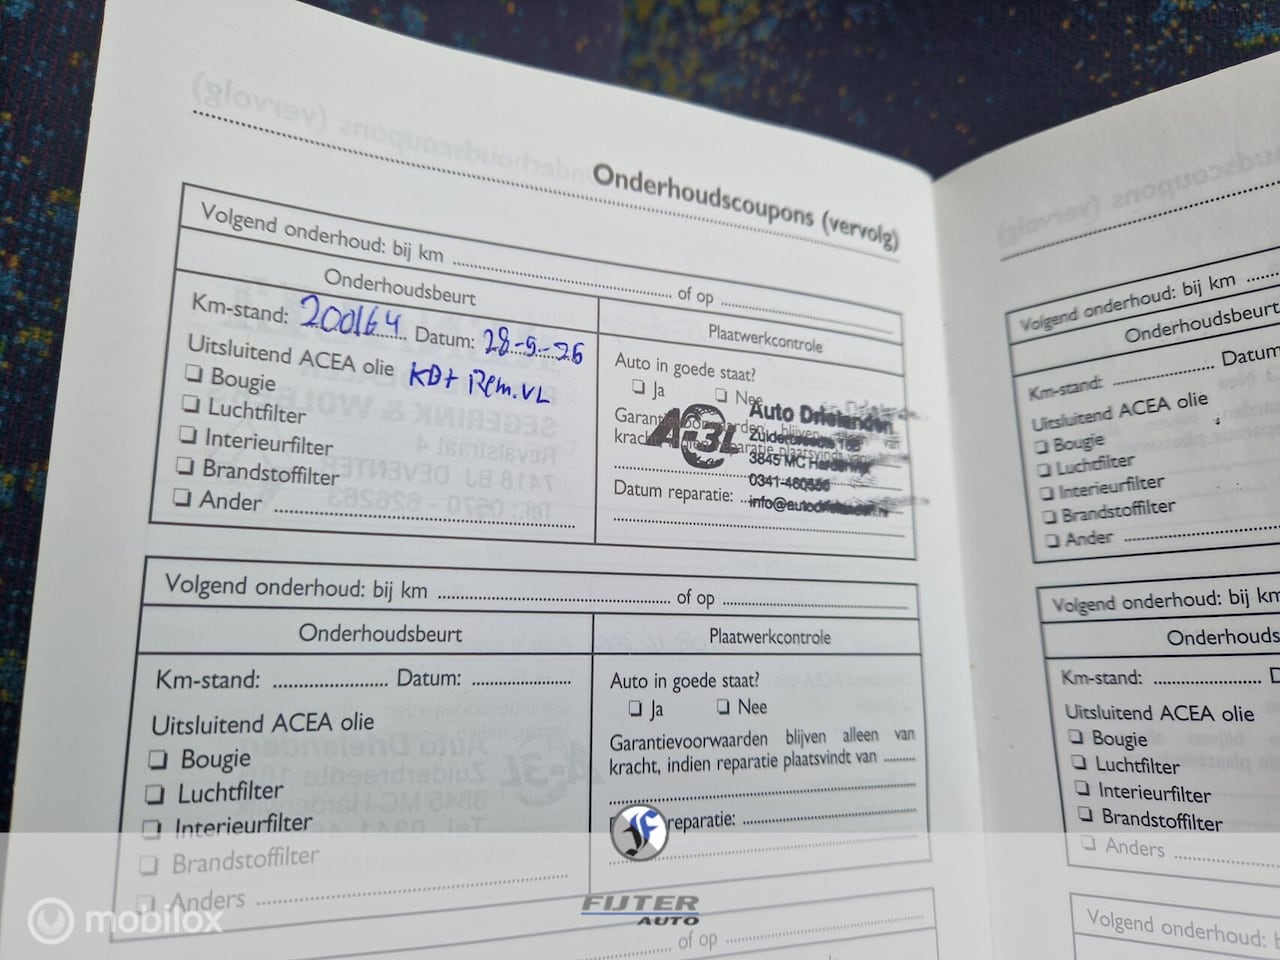 Onderhoudscoupons (vervolg)
Volgend onderhoud: bij km of op
Onderhoudsbeurt
Plaatwerkcontrole
Km-stand: 200164 Datum: 28-5-26
Uitsluitend ACEA olie KD+ Rem.VL
Bougie
Luchtfilter
Interieurfilter
Brandstoffilter
Ander
Auto in goede staat?
Ja Nee
Datum reparatie:
A-3L
Auto Drielanden
3845 MC Harderwijk
Volgend onderhoud: bij km of op
Onderhoudsbeurt
Plaatwerkcontrole
Km-stand: Datum:
Uitsluitend ACEA olie
Bougie
Luchtfilter
Interieurfilter
Brandstoffilter
Anders
Auto in goede staat?
Ja Nee
Garantievoorwaarden blijven alleen van
kracht, indien reparatie plaatsvindt van
reparatie:
of op
Volgend onderhoud: bij km
Onderhoudsbeurt
Km-stand: Datum
Uitsluitend ACEA olie
Bougie
Luchtfilter
Interieurfilter
Brandstoffilter
Ander
Volgend onderhoud: bij km
Onderhouds
Km-stand:
Uitsluitend ACEA olie
Bougie
Luchtfilter
Interieurfilter
Brandstoffilter
Anders
Volgend onderhoud:
mobilox
FIJTER
AUTO